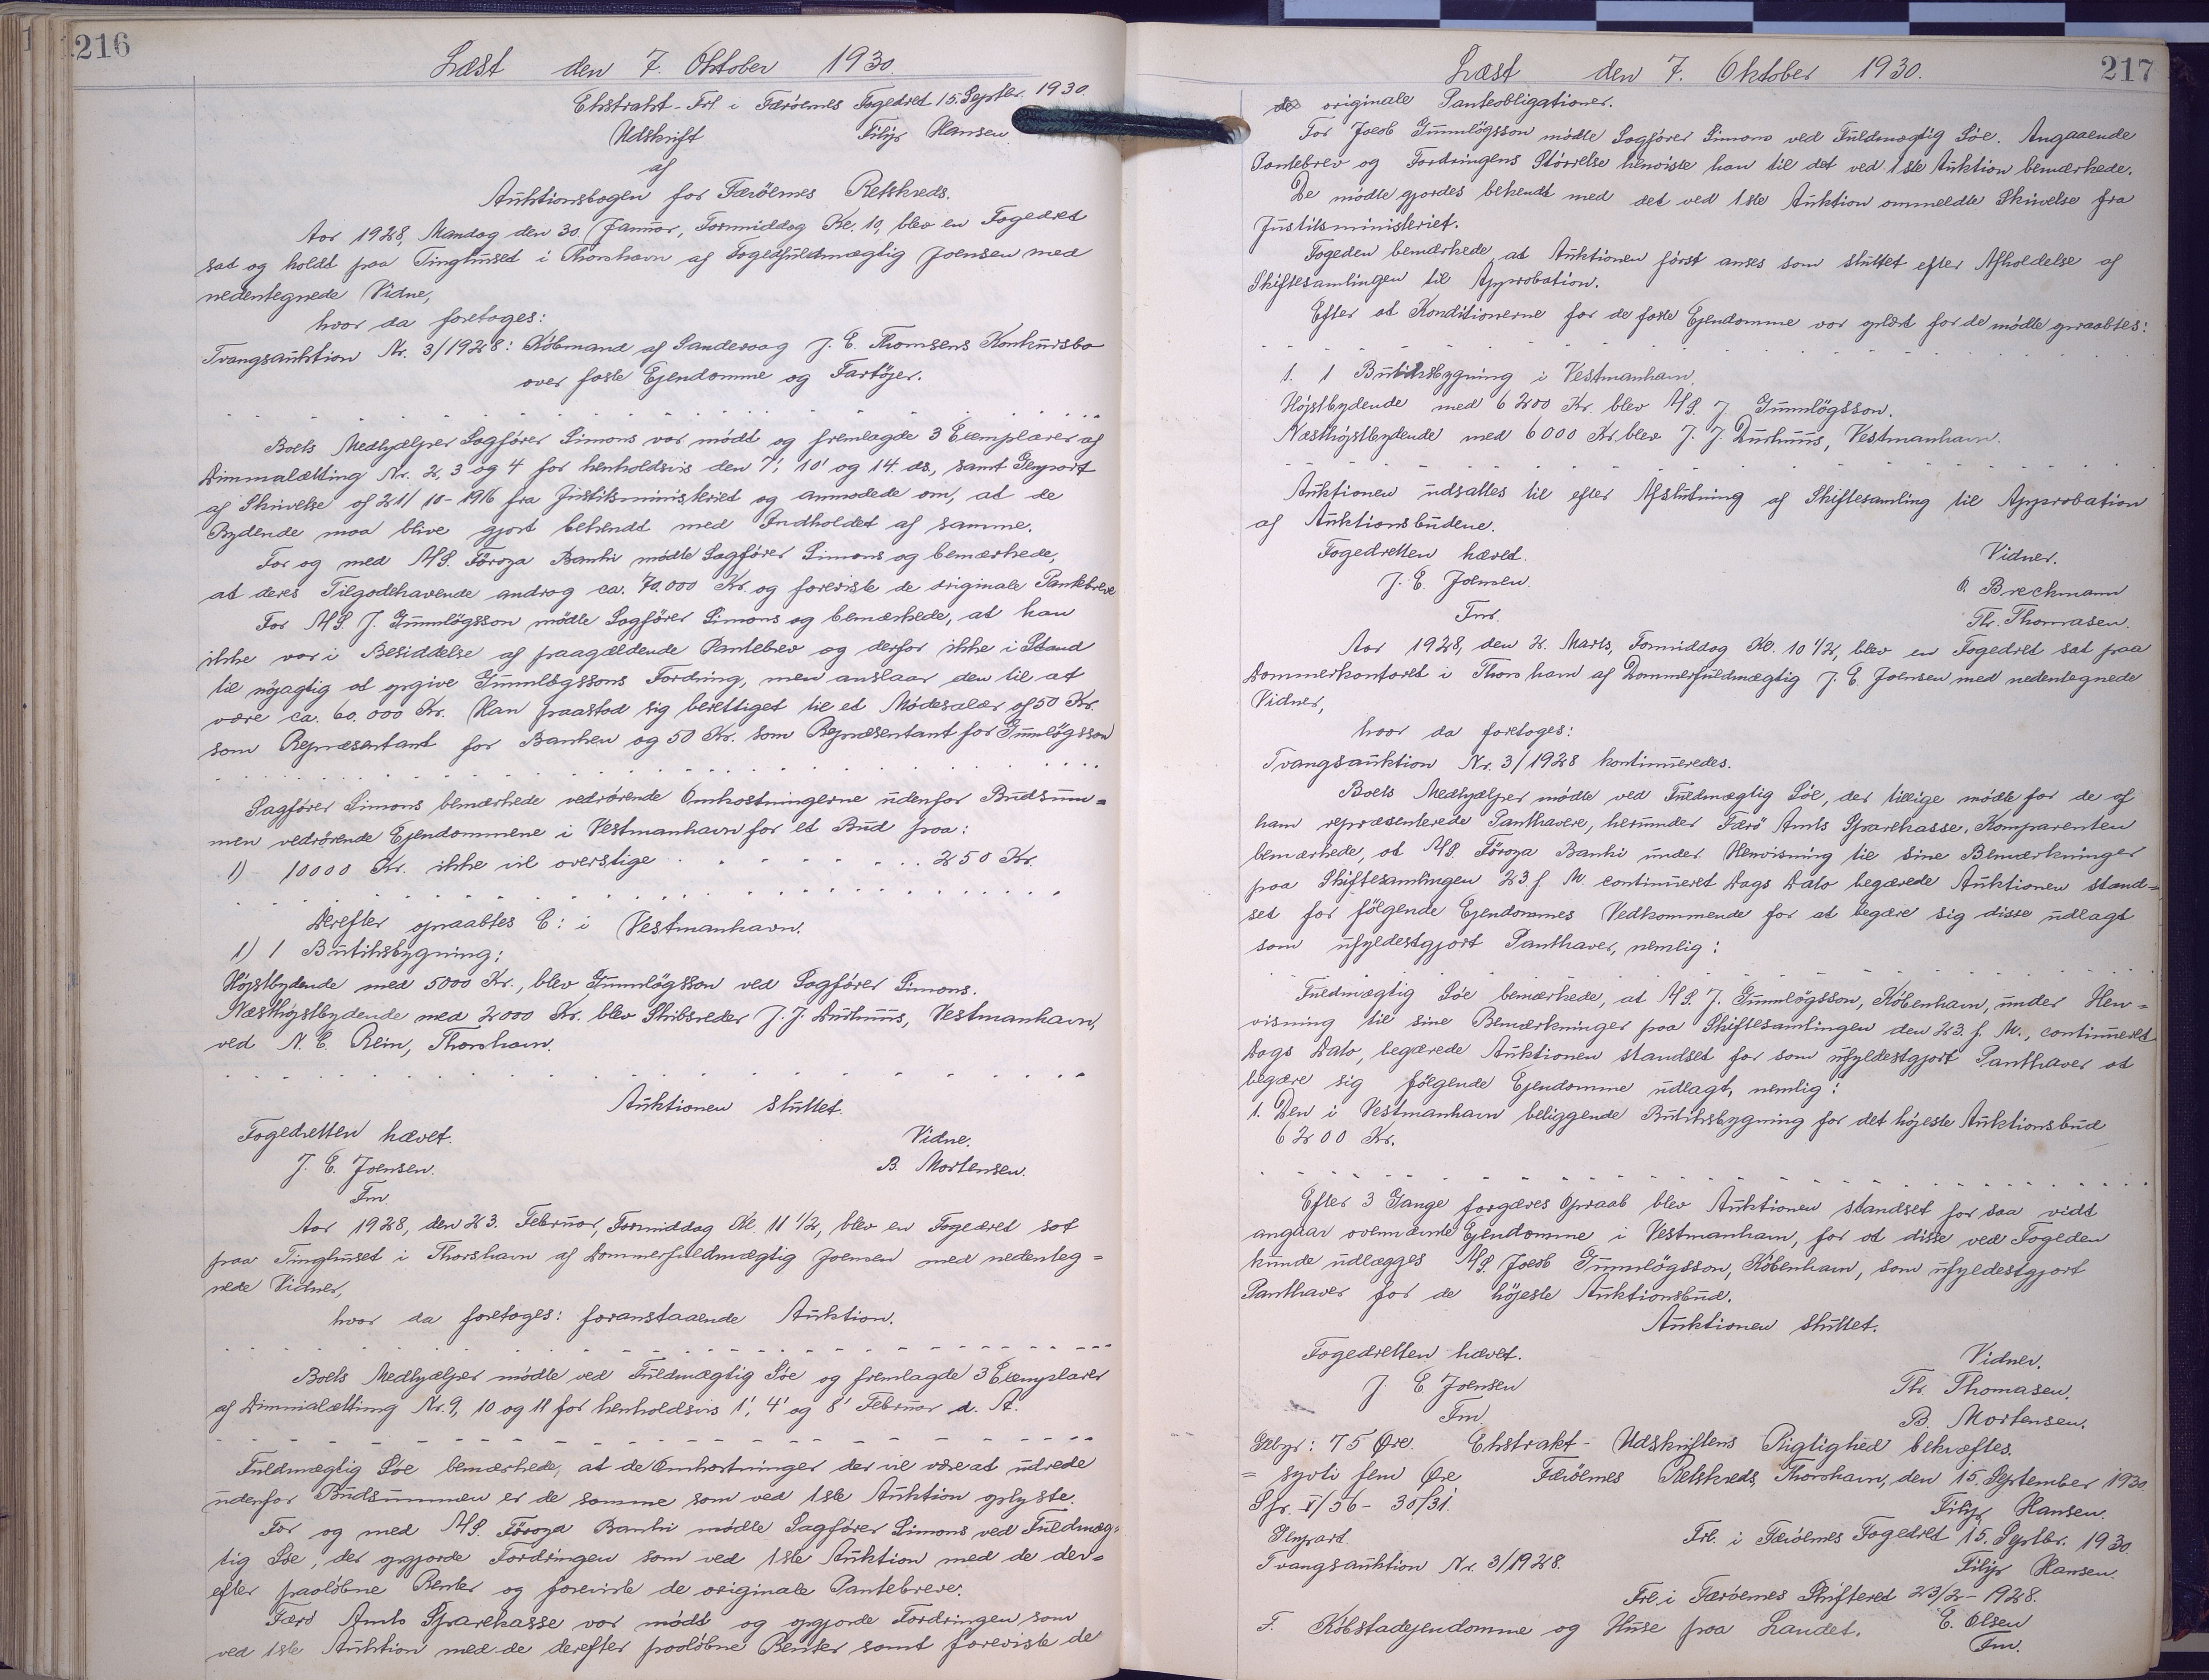 216
Læst den 7. Oktober 1930.
Ekstrakt. Frl. i Færöernes Fogedret 15. Septbr. 1930.
Udskrift Filip Hansen
af
Auktionsbogen for Færöernes Retskreds.
Aar 1928, Mandag den 30. Januar, Formiddag Kl. 10, blev en Fogedret
sat og holdt paa Tinghuset i Thorshavn af Fogedfuldmægtig Joensen med
nedentegnede Vidne,
hvor da foretoges:
Tvangsauktion Nr. 3/1928: Købmand af Sandevaag J. E. Thomsens Konkursbo
over faste Ejendomme og Fartöjer.
Boets Medhjælper Sagfører Simons var mødt og fremlagde 3 Exemplarer af
Dimmalætting Nr. 2, 3 og 4 for henholdsvis den 7', 10' og 14. ds., samt Genpart
af Skrivelse af 21/10-1916 fra Justitsministeriet og anmodede om, at de
Bydende maa blive gjort bekendt med Indholdet af samme.
For og med A/S. Föroya Banki mødte Sagfører Simons og bemærkede,
at deres Tilgodehavende androg ca. 70.000 Kr. og foreviste de originale Pantebreve
For A/S. J. Gunnlögsson mødte Sagfører Simons og bemærkede, at han
ikke var i Besiddelse af paagældende Pantebrev og derfor ikke i Stand
til nöjagtig at opgive Gunnlögssons Fordring, men anslaar den til at
være ca. 60.000 Kr. Han paastod sig berettiget til et Mødesalær af 50 Kr.
som Repræsentant for Banken og 50 Kr. som Repræsentant for Gunnlögsson
Sagfører Simons bemærkede vedrørende Omkostningerne udenfor Budsum=
men vedrørende Ejendommene i Vestmanhavn for et Bud paa:
1) 10000 Kr. ikke vil overstige . . . . . . . . 250 Kr.
Derefter opraabtes E: i Vestmanhavn.
1) 1 Butiksbygning;
Højstbydende med 5000 Kr., blev Gunnlögsson ved Sagfører Simons.
Næsthøjstbydende med 2000 Kr. blev Skibsreder J. J. Durhuus, Vestmanhavn,
ved N. E. Rein, Thorshavn.
Auktionen sluttet.
Fogedretten hævet. Vidne.
J. E. Joensen. B. Mortensen.
Fm
Aar 1928, den 23. Februar, Formiddag Kl. 11 1/2, blev en Fogedret sat
paa Tinghuset i Thorshavn af Dommerfuldmægtig Joensen med nedenteg=
nede Vidner,
hvor da foretoges: foranstaaende Auktion.
Boets Medhjælper mødte ved Fuldmægtig Söe og fremlagde 3 Exemplarer
af Dimmalætting Nr. 9, 10 og 11 for henholdsvis 1', 4' og 8' Februar d. A.
Fuldmægtig Söe bemærkede, at de Omkostninger der vil være at udrede
udenfor Budsummen er de samme som ved 1ste Auktion oplyste.
For og med A/S. Föroya Banki mødte Sagfører Simons ved Fuldmæg=
tig Söe, der opgjorde Fordringen som ved 1ste Auktion med de der=
efter paaløbne Renter og foreviste de originale Pantebreve.
Færö Amts Sparekasse var mødt og opgjorde Fordringen som
ved 1ste Auktion med de derefter paaløbne Renter samt foreviste de
217
Læst den 7. Oktober 1930.
de originale Panteobligationer.
For Jacob Gunnlögsson mødte Sagfører Simons ved Fuldmægtig Söe. Angaaende
Pantebrev og Fordringens Störrelse henviste han til det ved 1ste Auktion bemærkede.
De mødte gjordes bekendt med det ved 1ste Auktion ommeldte Skrivelse fra
Justitsministeriet.
Fogeden bemærkede, at Auktionen först anses som sluttet efter Afholdelse af
Skiftesamlingen til Approbation.
Efter at Konditionerne for de faste Ejendomme var oplæst for de mødte opraabtes:
1. 1 Butiksbygning i Vestmanhavn.
Højstbydende med 6200 Kr. blev A/S. J. Gunnlögsson.
Næsthøjstbydende med 6000 Kr blev J. J. Durhuus, Vestmanhavn.
Auktionen udsattes til efter Afslutning af Skiftesamling til Approbation
af Auktionsbudene.
Fogedretten hævet. Vidner.
J. E. Joensen. Breckmann
Fm. Th. Thomasen.
Aar 1928, den 2. Marts, Formiddag Kl. 10 1/2, blev en Fogedret sat paa
Dommerkontoret i Thorshavn af Dommerfuldmægtig J. E. Joensen med nedentegnede
Vidner,
hvor da foretoges:
Tvangsauktion Nr. 3/1928 kontinueredes.
Boets Medhjælper mødte ved Fuldmægtig Söe, der tillige mødte for de af
ham repræsenterede Panthavere, herunder Færö Amts Sparekasse. Komparenten
bemærkede, at A/S. Föroya Banki under Henvisning til sine Bemærkninger
paa Skiftesamlingen 23. f. M. continueret Dags Dato begærede Auktionen stand=
set for følgende Ejendommes Vedkommende for at begære sig disse udlagt
som ufyldestgjort Panthaver, nemlig:
Fuldmægtig Söe bemærkede, at A/S. J. Gunnlögsson, København, under Hen=
visning til sine Bemærkninger paa Skiftesamlingen den 23. f. M., continueret
Dags Dato, begærede Auktionen standset for som ufyldestgjort Panthaver at
begære sig følgende Ejendomme udlagt, nemlig:
1. Den i Vestmanhavn beliggende Butiksbygning for det højeste Auktionsbud
6200 Kr.
Efter 3 Gange forgæves Opraab blev Auktionen standset for saa vidt
angaar ovennævnte Ejendomme i Vestmanhavn, for at disse ved Fogeden
kunde udlægges A/S. Jacob Gunnlögsson, København, som ufyldestgjort
Panthaver for de højeste Auktionsbud.
Auktionen sluttet.
Fogedretten hævet. Vidner.
J. E Joensen Th. Thomasen.
Fm. B. Mortensen.
Gebyr: 75 Øre. Ekstrakt-Udskriftens Rigtighed bekræftes.
= syvti fem Øre Færöernes Retskreds, Thorshavn, den 15. September 1930.
Sfr. V/56 - 30/31. Filip Hansen.
Genpart. Frl. i Færöernes Fogedret 15. Septbr. 1930
Tvangsauktion Nr. 3/1928. Filip Hansen.
Frl. i Færöernes Skifteret 23/2-1928.
F. Købstadejendomme og Huse paa Landet. E. Olsen
Fm.